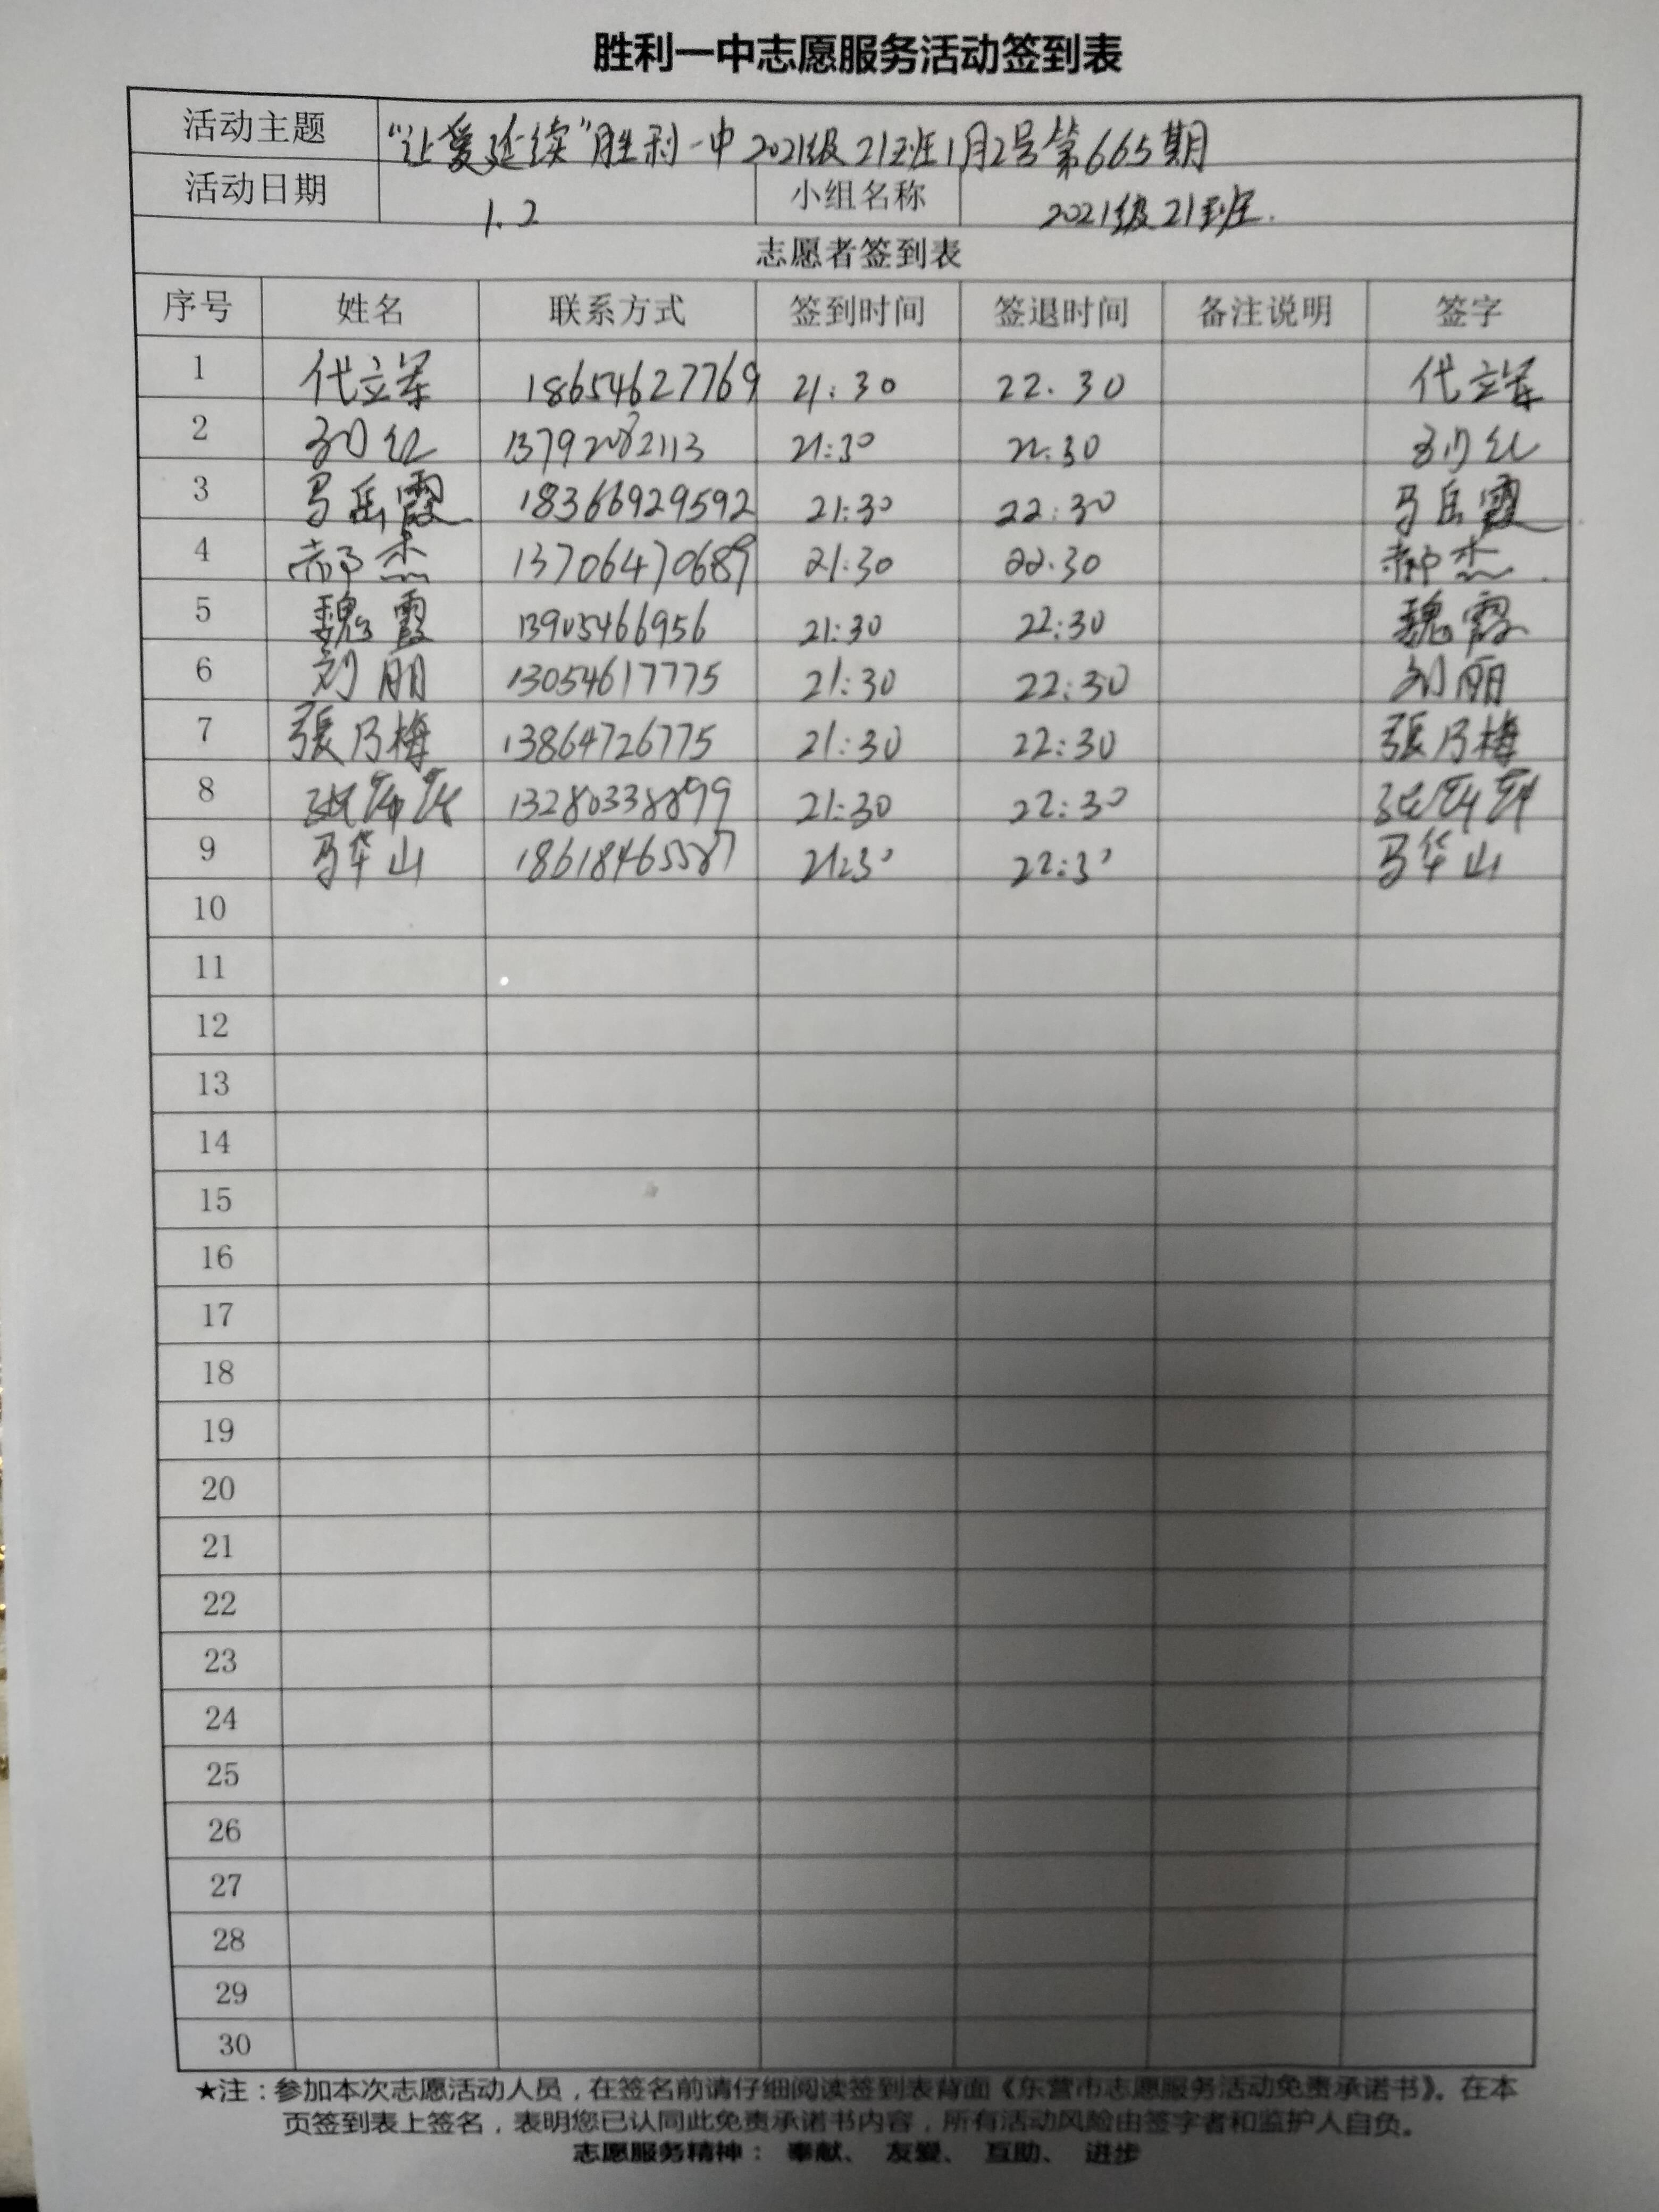 胜利一中志愿服务活动签到表
活动主题 “让爱延续”胜利一中2021级21班1月2号第665期
活动日期 1.2 小组名称 2021级21班.
志愿者签到表
序号 姓名 联系方式 签到时间 签退时间 备注说明 签字
1 代立军 18654627769 21:30 22.30 代立军
2 13792082113 21:30 22:30
3 马岳霞 18366929592 21:30 22:30 马岳霞
4 郝杰 13706470689 21:30 22.30 郝杰
5 魏霞 13905466956 21:30 22:30 魏霞
6 刘丽 13054617775 21:30 22:30 刘丽
7 張乃梅 13864726775 21:30 22:30 張乃梅
8 13280338899 21:30 22:30
9 马华山 18618465587 21:30 22:30 马华山
10
11
12
13
14
15
16
17
18
19
20
21
22
23
24
25
26
27
28
29
30
★注：参加本次志愿活动人员，在签名前请仔细阅读签到表背面《东营市志愿服务活动免责承诺书》。在本
页签到表上签名，表明您已认同此免责承诺书内容，所有活动风险由签字者和监护人自负。
志愿服务精神： 奉献、 友爱、 互助、 进步